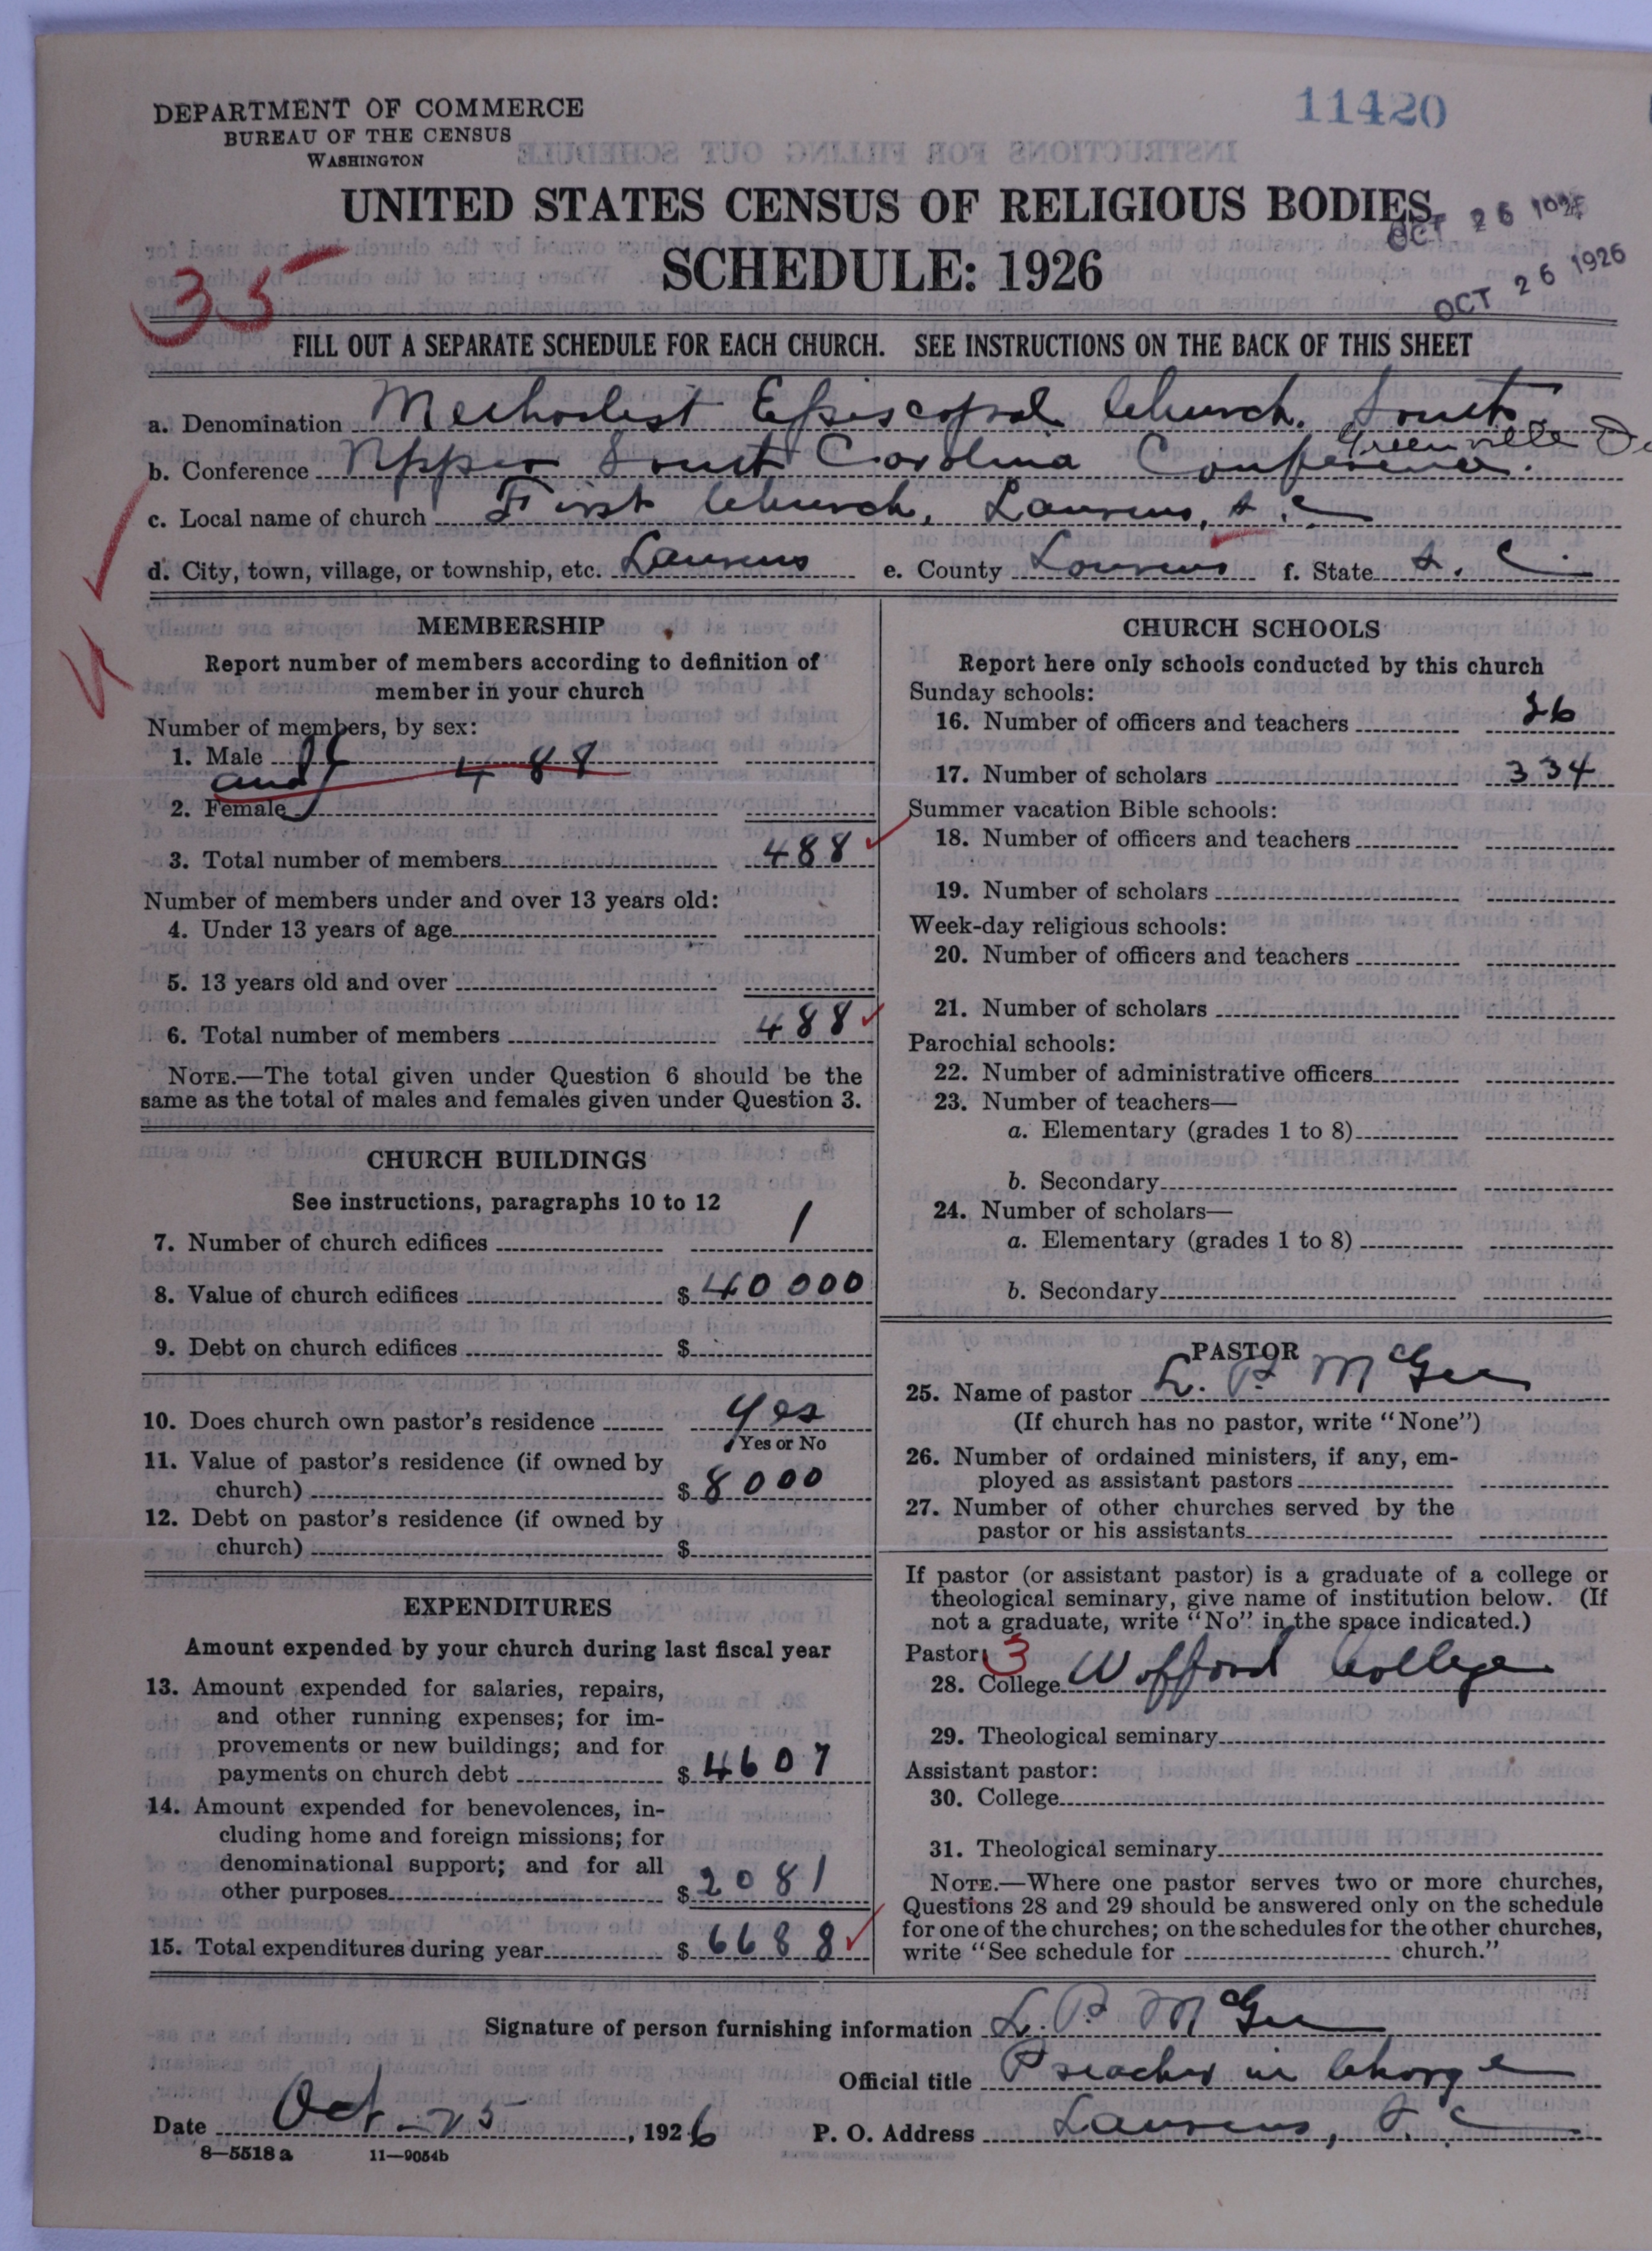 DEPARTMENT OF COMMERCE
BUREAU OF THE CENSUS
WASHINGTON
11420
UNITED STATES CENSUS OF RELIGIOUS BODIES
OCT 26 1926
SCHEDULE: 1926
OCT 26 1926
35
FILL OUT A SEPARATE SCHEDULE FOR EACH CHURCH. SEE INSTRUCTIONS ON THE BACK OF THIS SHEET
a. Denomination Methodist Episcopal Church. South
Greenville
b. Conference Upper South Carolina Conference.
c. Local name of church First Church, Laurens, S. C
d. City, town, village, or township, etc. Laurens e. County Laurens f. State S. C
MEMBERSHIP
Report number of members according to definition of
member in your church
Number of members, by sex:
1. Male
and 488
2. Female
3. Total number of members 488
Number of members under and over 13 years old:
4. Under 13 years of age
5. 13 years old and over
6. Total number of members 488
NOTE.—The total given under Question 6 should be the
same as the total of males and females given under Question 3.
CHURCH BUILDINGS
See instructions, paragraphs 10 to 12
7. Number of church edifices 1
8. Value of church edifices $ 40000
9. Debt on church edifices $
10. Does church own pastor's residence Yes
Yes or No
11. Value of pastor's residence (if owned by
church) $ 8000
12. Debt on pastor's residence (if owned by
church) $
EXPENDITURES
Amount expended by your church during last fiscal year
13. Amount expended for salaries, repairs,
and other running expenses; for im-
provements or new buildings; and for
payments on church debt $ 4607
14. Amount expended for benevolences, in-
cluding home and foreign missions; for
denominational support; and for all
other purposes $ 2081
15. Total expenditures during year $ 6688
CHURCH SCHOOLS
Report here only schools conducted by this church
Sunday schools:
16. Number of officers and teachers
17. Number of scholars 334
Summer vacation Bible schools:
18. Number of officers and teachers
19. Number of scholars
Week-day religious schools:
20. Number of officers and teachers
21. Number of scholars
Parochial schools:
22. Number of administrative officers
23. Number of teachers—
a. Elementary (grades 1 to 8)
b. Secondary
24. Number of scholars—
a. Elementary (grades 1 to 8)
b. Secondary
PASTOR
25. Name of pastor L. P. McGee
(If church has no pastor, write "None")
26. Number of ordained ministers, if any, em-
ployed as assistant pastors
27. Number of other churches served by the
pastor or his assistants
If pastor (or assistant pastor) is a graduate of a college or
theological seminary, give name of institution below. (If
not a graduate, write "No" in the space indicated.)
Pastor: 3
28. College Wofford College
29. Theological seminary
Assistant pastor:
30. College
31. Theological seminary
NOTE.—Where one pastor serves two or more churches,
Questions 28 and 29 should be answered only on the schedule
for one of the churches; on the schedules for the other churches,
write "See schedule for church."
Signature of person furnishing information L. P. McGee
Official title Preacher in Charge
Date Oct - 25, 1926 P. O. Address Laurens, S. C
8—5518 a 11—9054b